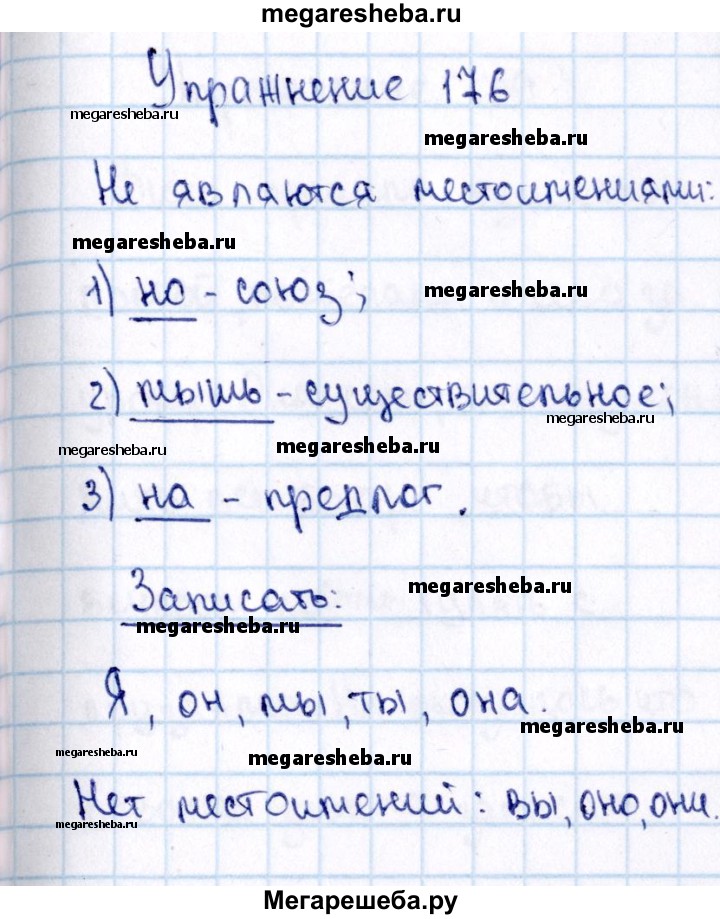 megaresheba.ru
Упражнение 176
megaresheba.ru
megaresheba.ru
Не являются местоимениями:
megaresheba.ru
1) но - союз;
megaresheba.ru
2) мышь - существительное;
megaresheba.ru
megaresheba.ru
megaresheba.ru
3) на - предлог.
megaresheba.ru
Записать:
megaresheba.ru
Я, он, мы, ты, она.
megaresheba.ru
megaresheba.ru
megaresheba.ru
Нет местоимений: вы, оно, они.
megaresheba.ru
Мегарешеба.ру